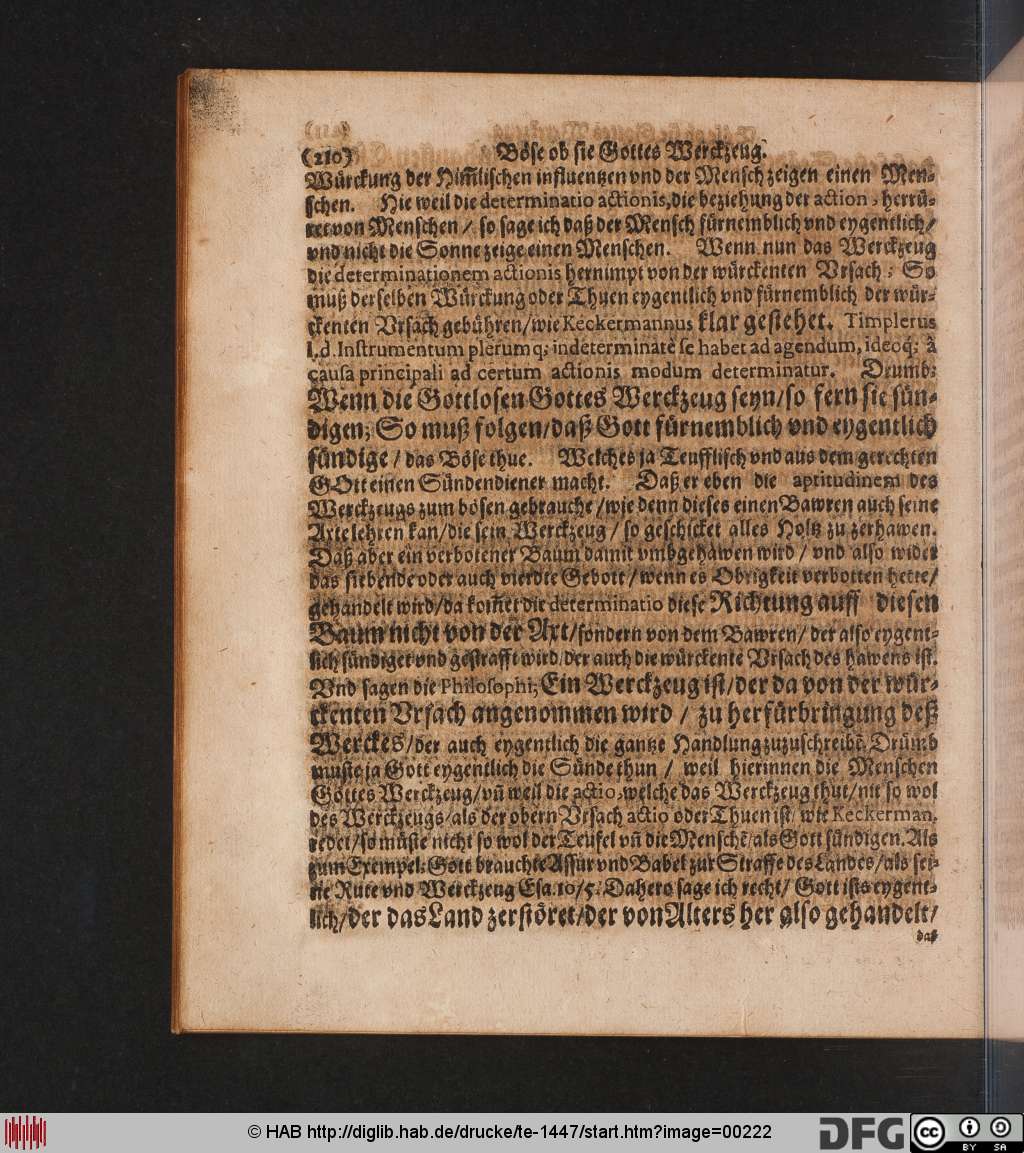 (210) Böse ob sie Gottes Werckzeug.
Würckung der Him̃lischen influentzen vnd der Mensch zeigen einen Men-
schen. Hie weil die determinatio actionis, die beziehung der action, herrü-
ret von Menschen / so sage ich daß der Mensch fürnemblich vnd eygentlich/
vnd nicht die Sonne zeige einen Menschen. Wenn nun das Werckzeug
die determinationem actionis hernimpt von der würckenten Vrsach; So
muß derselben Würckung oder Thuen eygentlich vnd fürnemblich der wür-
ckenten Vrsach gebühren/wie Keckermannus klar gestehet. Timplerus
l.d. Instrumentum plerumq; indeterminatè se habet ad agendum, ideoq́; à
causa principali ad certum actionis modum determinatur. Drumb:
Wenn die Gottlosen Gottes Werckzeug seyn/so fern sie sün-
digen; So muß folgen/daß Gott fürnemblich vnd eygentlich
sündige / das Böse thue. Welches ja Teufflisch vnd aus dem gerechten
GOtt einen Sündendiener macht. Daß er eben die aptitudinem des
Werckzeugs zum bösen gebrauche / wie denn dieses einen Bawren auch seine
Axte lehren kan/die sein Werckzeug / so geschicket alles Holtz zu zerhawen.
Daß aber ein verbotener Baum damit vmbgehawen wird / vnd also wider
das siebende oder auch vierdte Gebott / wenn es Obrigkeit verbotten hette/
gehandelt wird/da kom̃et die determinatio diese Richtung auff diesen
Baum nicht von der Axt/sondern von dem Bawren/ der also eygent-
lich sündiget vnd gestrafft wird/der auch die würckente Vrsach des hawens ist.
Vnd sagen die Philosophi; Ein Werckzeug ist/der da von der wür-
ckenten Vrsach angenommen wird / zu herfürbringung deß
Werckes/der auch eygentlich die gantze Handlung zuzuschreibẽ, Drumb
muste ja Gott eygentlich die Sünde thun / weil hierinnen die Menschen
Gottes Werckzeug/vñ weil die actio, welche das Werckzeug thut/nit so wol
des Werckzeugs/als der obern Vrsach actio oder Thuen ist/ wie Keckerman.
redet/so müste nicht so wol der Teufel vñ die Menschẽ/als Gott sündigen. Als
zum Exempel: Gott brauchte Assur vnd Babel zur Straffe des Landes/als sei-
ne Rute vnd Werckzeug Esa. 10/5. Dahero sage ich recht/ Gott ists eygent-
lich/der das Land zerstöret/der von Alters her also gehandelt/
daß
© HAB http://diglib.hab.de/drucke/te-1447/start.htm?image=00222
DFG
cc
BY SA